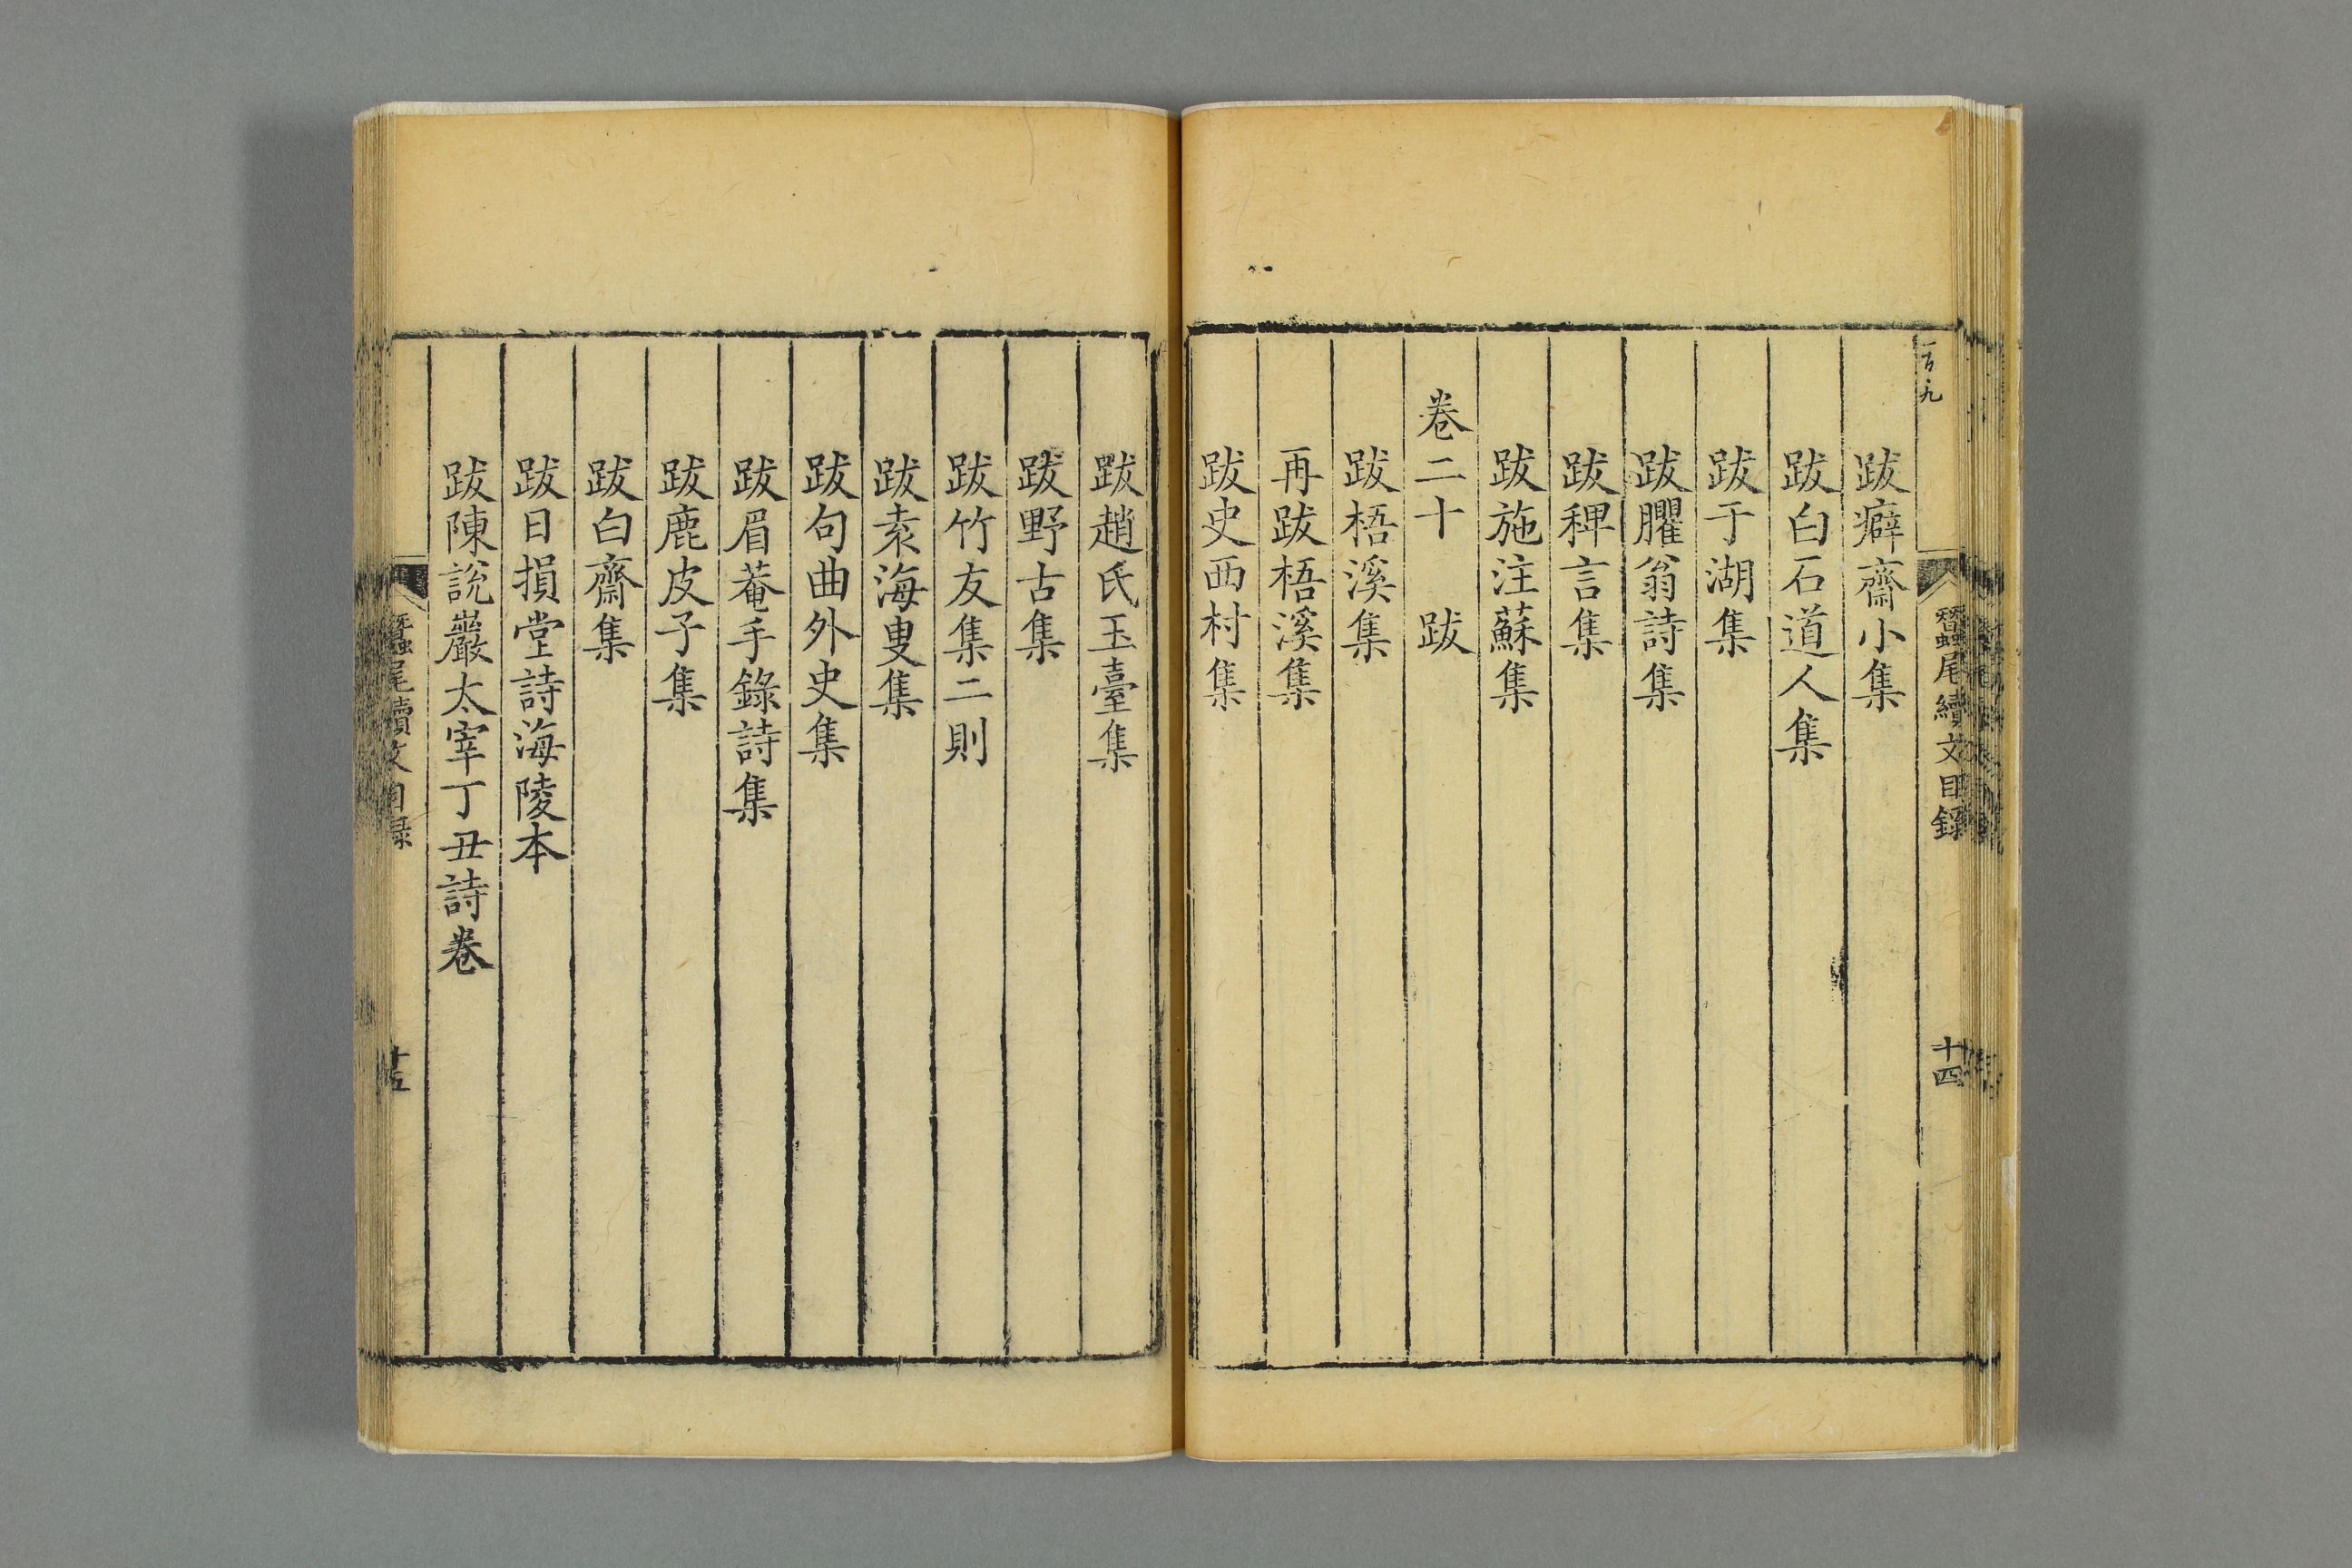 百九
蠶尾續文目録
十四
跋癖齋小集
跋白石道人集
跋于湖集
跋臞翁詩集
跋稗言集
跋施注蘇集
卷二十　跋
跋梧溪集
再跋梧溪集
跋史西村集
跋趙氏玉臺集
跋野古集
跋竹友集二則
跋袁海叟集
跋句曲外史集
跋眉菴手錄詩集
跋鹿皮子集
跋白齋集
跋日損堂詩海陵本
跋陳說巖太宰丁丑詩卷
蠶尾續文目録
十五